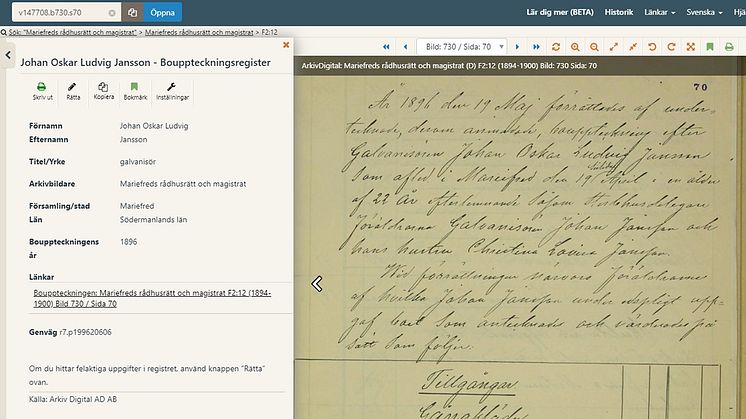 v147708.b730.s70
Öppna
Lär dig mer (BETA)
Historik
Länkar
Svenska
Hjä
Sök: "Mariefreds rådhusrätt och magistrat" > Mariefreds rådhusrätt och magistrat > F2:12
Johan Oskar Ludvig Jansson - Bouppteckningsregister
Skriv ut
Rätta
Kopiera
Bokmärk
Inställningar
Förnamn Johan Oskar Ludvig
Efternamn Jansson
Titel/Yrke galvanisör
Arkivbildare Mariefreds rådhusrätt och magistrat
Församling/stad Mariefred
Län Södermanlands län
Bouppteckningens år 1896
Länkar
Bouppteckningen: Mariefreds rådhusrätt och magistrat F2:12 (1894-
1900) Bild 730 / Sida 70
Genväg r7.p199620606
Om du hittar felaktiga uppgifter i registret, använd knappen "Rätta"
ovan.
Källa: Arkiv Digital AD AB
Bild: 730 / Sida: 70
ArkivDigital: Mariefreds rådhusrätt och magistrat (D) F2:12 (1894-1900) Bild: 730 Sida: 70
70
År 1896 den 19 Maj förrättades af under-
tecknade, dertom anmodade, bouppteckning efter
Galvanisören Johan Oskar Ludvig Jansson
som afled i Mariefred den 19 April i en ålder
af 22 år efterlemnande såsom Sterbhusdelegare
föräldrarna Galvanisören Johan Jansson och
hans hustru Christina Lovisa Jansson.
Wid förrättningen närvoro föräldrarne
af hvilka Johan Jansson under edspligt upp-
gaf boet som antecknades och värderades på
sätt som följer:
Tillgångar
Gångkläder